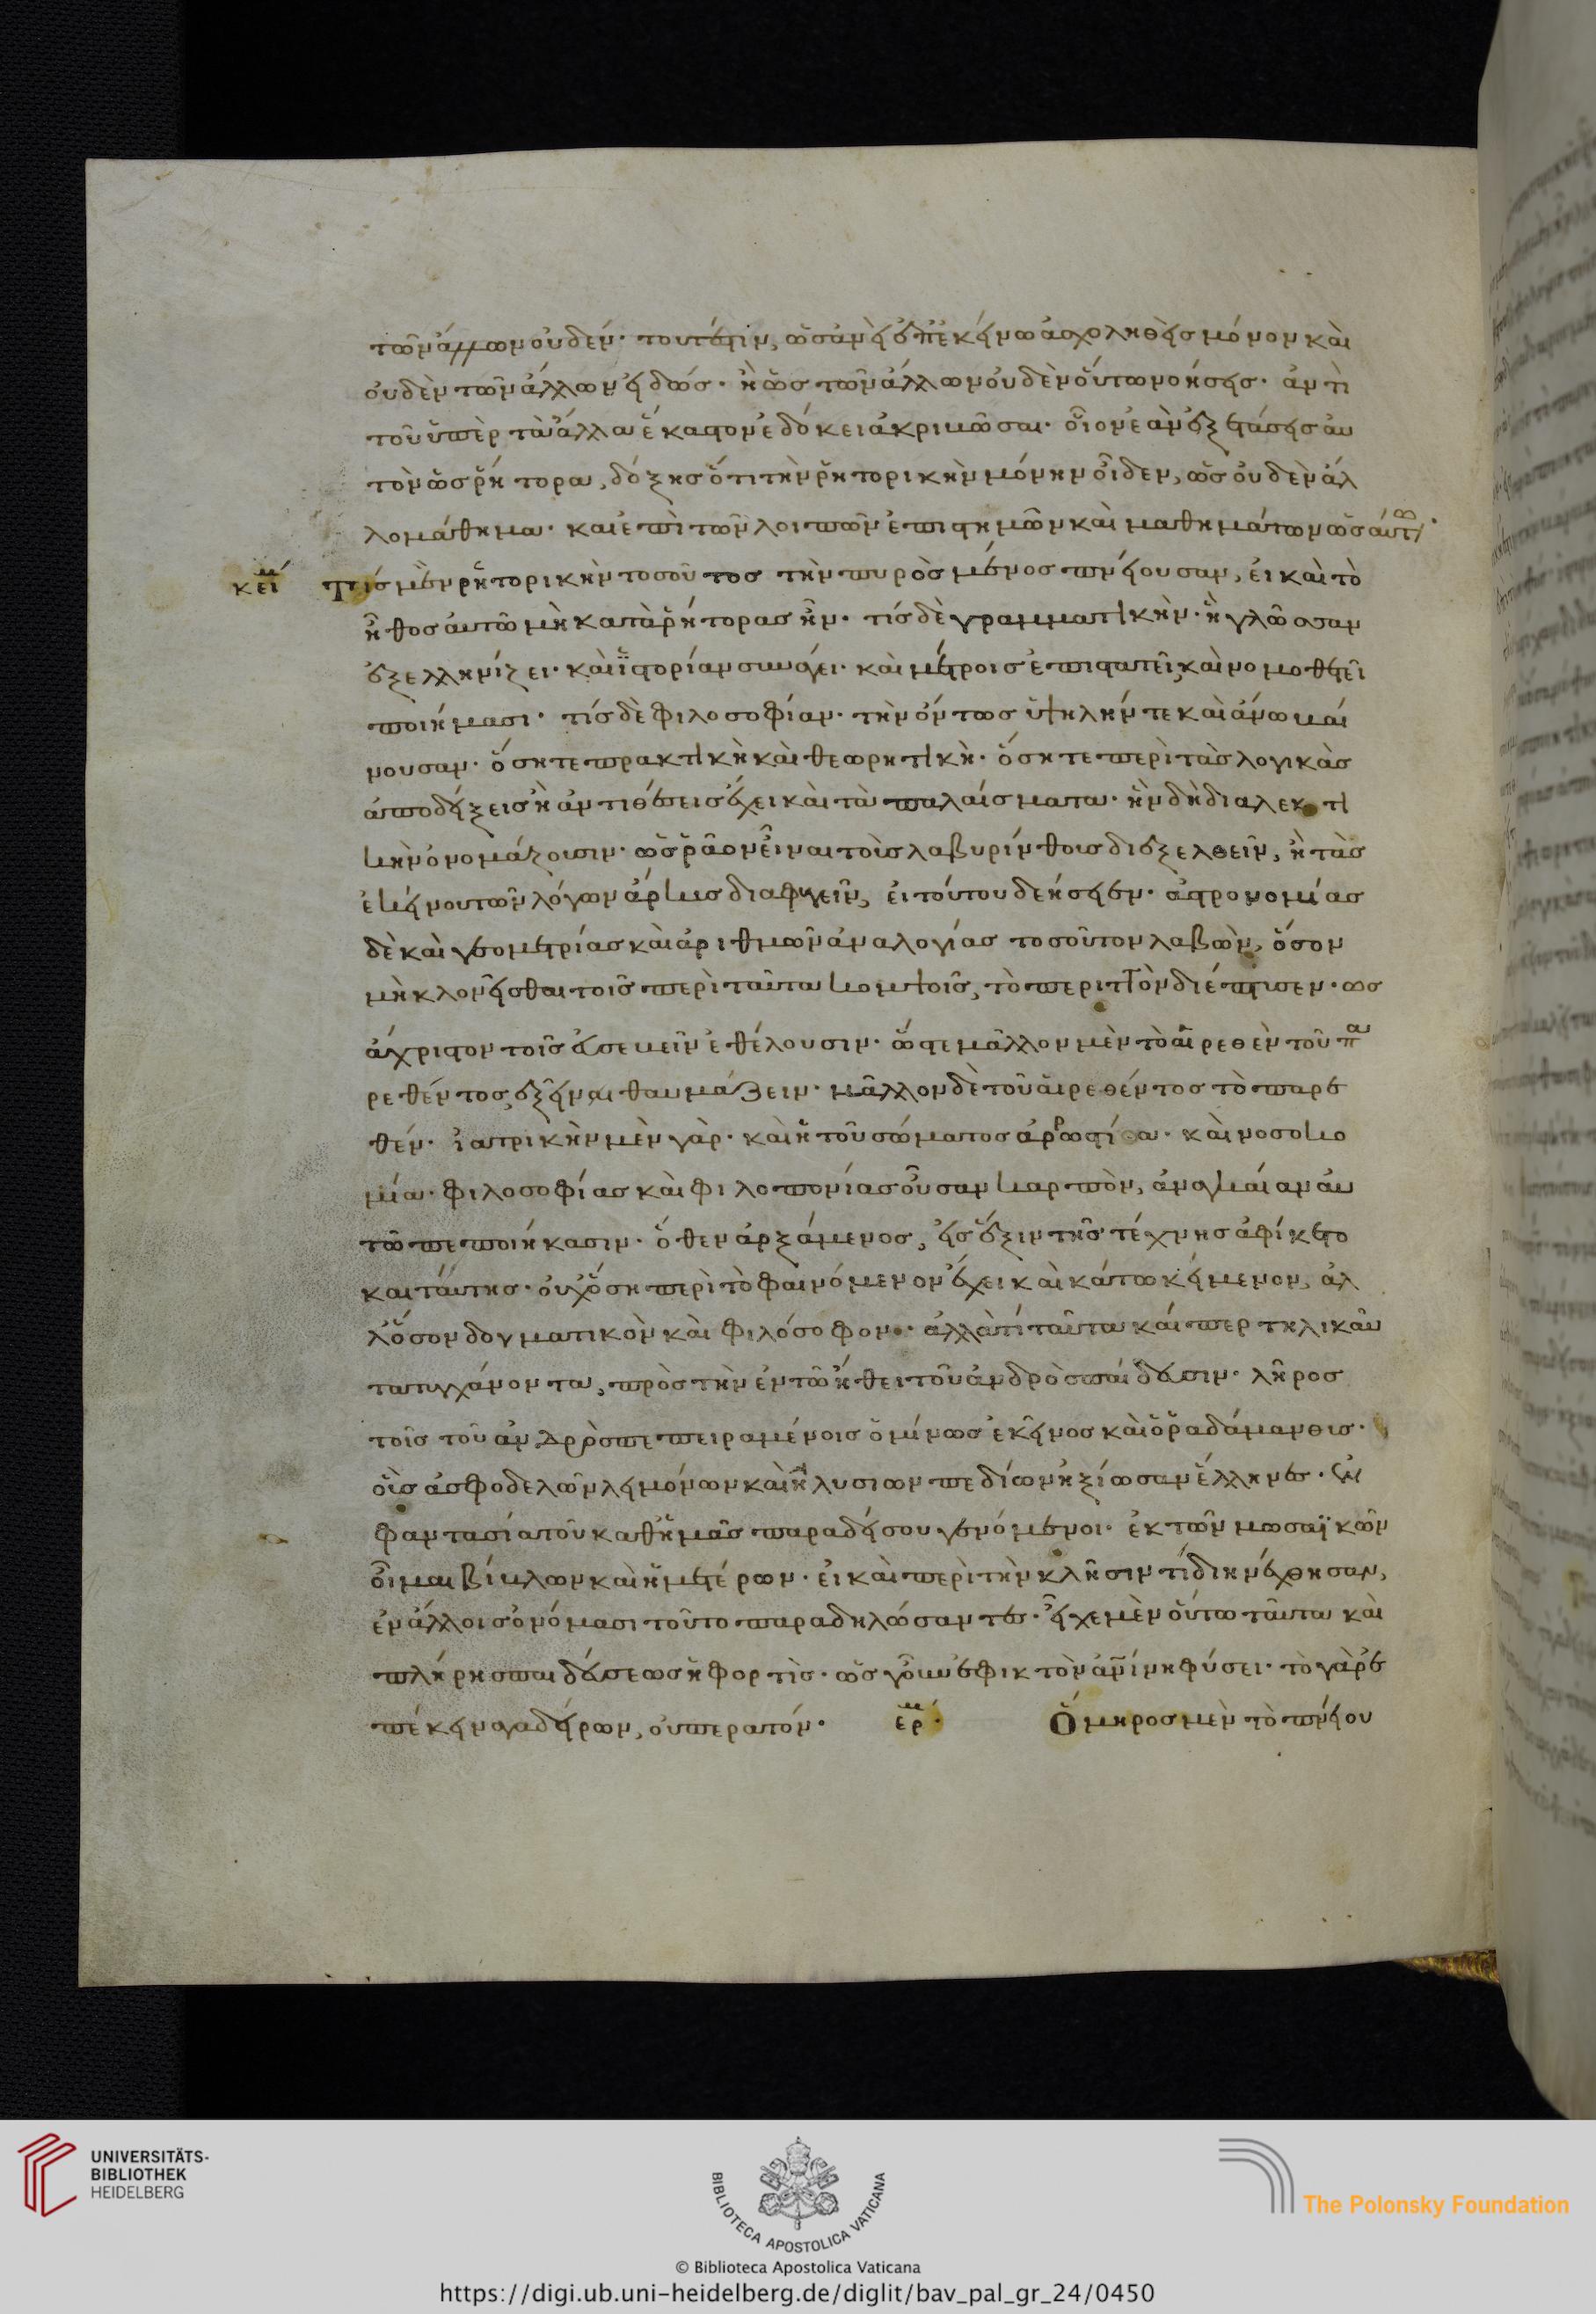 τῶν ἄλλων οὐδέν· τουτέστιν, ὡσανεὶ ἐπ' ἐκείνω ἀσχοληθεὶς μόνον καὶ
οὐδὲν τῶν ἄλλων εἰδώς· ἢ ὡς τῶν ἄλλων οὐδὲν οὕτω νοήσεις· ἀντὶ
τοῦ ὑπὲρ τὰ ἄλλα ἕκαστον ἐδόκει ἀκριβῶσαι· οἷον ἐὰν ἐξετάσεις αὐ
τὸν ὡς ῥήτορα, δόξης ὅτι τὴν ῥητορικὴν μόνην οἶδεν, ὡς οὐδὲν ἄλ
λο μάθημα· καὶ ἐπὶ τῶν λοιπῶν ἐπιστημῶν καὶ μαθημάτων ὡσαύτ/ω·
κείμ τίς μὲν ῥητορικὴν τοσοῦτος τὴν πυρὸς μένος πνείουσαν, εἰ καὶ τὸ
ἦθος αὐτῶ μὴ κατὰ ῥήτορας ἦν· τίς δὲ γραμματικὴν· ἣ γλῶσσαν
ἐξελληνίζει· καὶ ἱστορίαν συνάγει· καὶ μέτροις ἐπιστατεῖ, καὶ νομοθετεῖ
ποιήμασι· τίς δὲ φιλοσοφίαν· τὴν ὄντως ὑψηλήν τε καὶ ἄνω βαί
νουσαν· ὅση τε πρακτικὴ καὶ θεωρητικὴ· ὅση τε περὶ τὰς λογικὰς
ἀποδείξεις ἢ ἀντιθέσεις ἔχει καὶ τὰ παλαίσματα· ἣν δὴ διαλεκτι
κὴν ὀνομάζουσιν· ὡς ῥᾶον εἶναι τοὺς λαβυρίνθους διεξελθεῖν, ἢ τὰς
ἐκείνου τῶν λόγων ἄρκυς διαφυγεῖν, εἰ τούτου δεήσειεν· ἀστρονομίας
δὲ καὶ γεομετρίας καὶ ἀριθμῶν ἀναλογίας τοσοῦτον λαβὼν, ὅσον
μὴ κλονεῖσθαι τοῖς περὶ ταῦτα κομψοῖς, τὸ περιττὸν διέπτυσεν· ὡς
ἄχρηστον τοῖς εὐσεβεῖν ἐθέλουσιν· ὥστε μᾶλλον μὲν τὸ αἱρεθὲν τοῦ πα
ρεθέντος, ἐξεῖναι θαυμάζειν· μᾶλλον δὲ τοῦ αἱρεθέντος τὸ παρε
θέν· ἰατρικὴν μὲν γὰρ· καὶ ἡ τοῦ σώματος ἀρρωστία· καὶ νοσοκο
μία· φιλοσοφίας καὶ φιλοπονίας οὖσαν καρπὸν, ἀναγκαίαν αὐ
τῶ πεποιήκασιν· ὅθεν ἀρξάμενος, εἰς ἕξιν τῆς τέχνης ἀφίκετο
καὶ ταύτης· οὐχ ὅση περὶ τὸ φαινόμενον ἔχει καὶ κάτω κείμενον, ἀλ
λ' ὅσον δογματικὸν καὶ φιλόσοφον· ἀλλὰ τί ταῦτα καίπερ τηλικαῦ
τα τυγχάνοντα, πρὸς τὴν ἐν τῶ ἤθει τοῦ ἀνδρὸς παίδευσιν· λῆρος
τοῖς τοῦ ἀνδρὸς πεπειραμένοις ὁ μίνως ἐκεῖνος καὶ ὁ ῥαδάμανθυς·
οὓς ἀσφοδελῶν λειμώνων καὶ ἠλυσίων πεδίων ἠξίωσαν ἕλληνες· ἐν
φαντασία τοῦ καθ' ἡμᾶς παραδείσου γενόμενοι· ἐκ τῶν μωσαϊκῶν
οἶμαι βίβλων καὶ ἡμετέρων· εἰ καὶ περὶ τὴν κλῆσίν τι διηνέχθησαν,
ἐν ἄλλοις ὀνόμασι τοῦτο παραδηλώσαντες· εἶχε μὲν οὕτω ταῦτα καὶ
πλήρης παιδεύσεως ἡ φορτὶς· ὡς γοῦν ἐφικτὸν ἀνίνη φύσει· τὸ γὰρ ἐ
πέκεινα γαδείρων, οὐ περατόν· ἑρμ· Ὅμηρος μὲν τὸ πνείου
UNIVERSITÄTS-
BIBLIOTHEK
HEIDELBERG
BIBLIOTECA APOSTOLICA VATICANA
The Polonsky Foundation
© Biblioteca Apostolica Vaticana
https://digi.ub.uni-heidelberg.de/diglit/bav_pal_gr_24/0450